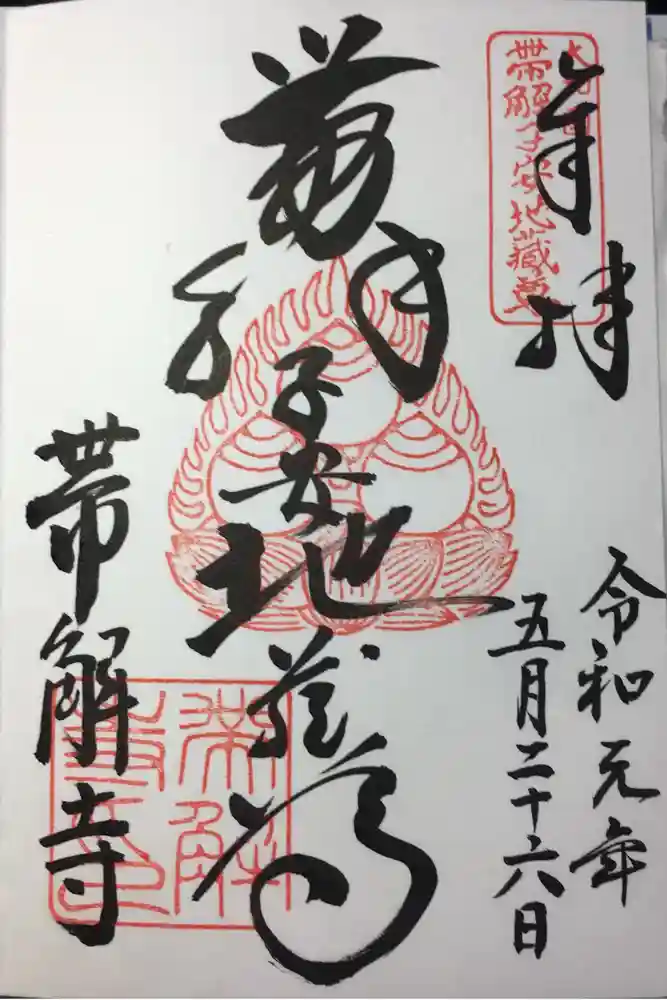 奉拝
帯解子安地蔵尊
令和元年
五月二十六日
帯解子安地蔵尊
帯解寺
帯解
寺印